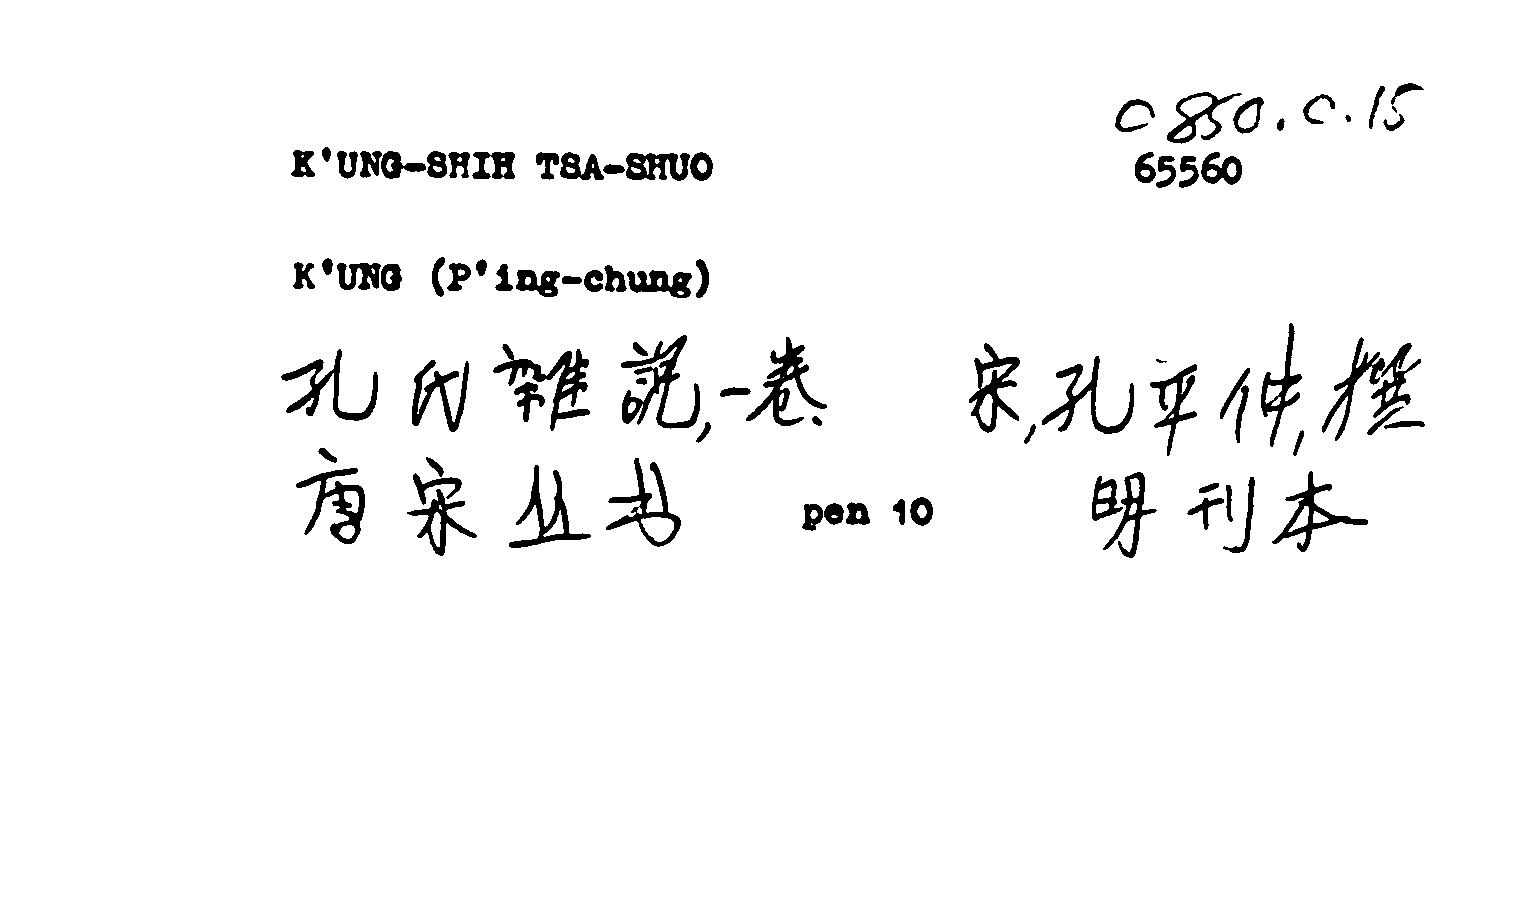 C850.C.15
K'UNG-SHIH TSA-SHUO 65560
K'UNG (P'ing-chung)
孔氏雜説,一卷. 宋,孔平仲,撰
唐宋丛书 pen 10 明刊本